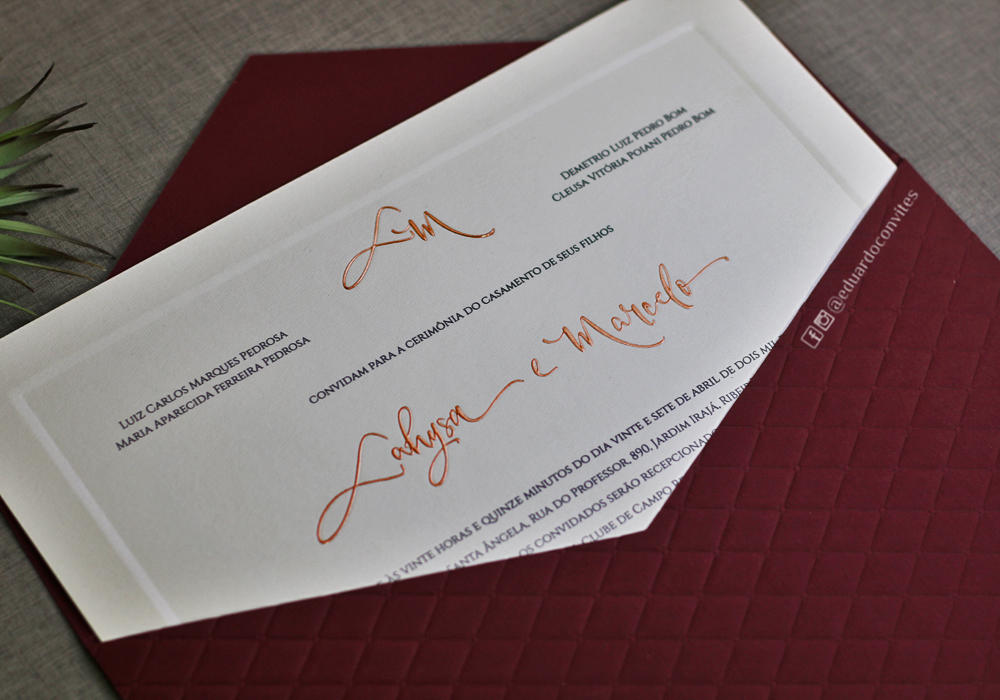 LM
LUIZ CARLOS MARQUES PEDROSA
MARIA APARECIDA FERREIRA PEDROSA
DEMETRIO LUIZ PEDRO BOM
CLEUSA VITÓRIA POIANI PEDRO BOM
CONVIDAM PARA A CERIMÔNIA DO CASAMENTO DE SEUS FILHOS
Lahysa e Marcelo
ÀS VINTE HORAS E QUINZE MINUTOS DO DIA VINTE E SETE DE ABRIL DE DOIS MIL
SANTA ÂNGELA, RUA DO PROFESSOR, 890, JARDIM IRAJÁ,
OS CONVIDADOS SERÃO
CLUBE DE CAMPO
@eduardoconvites